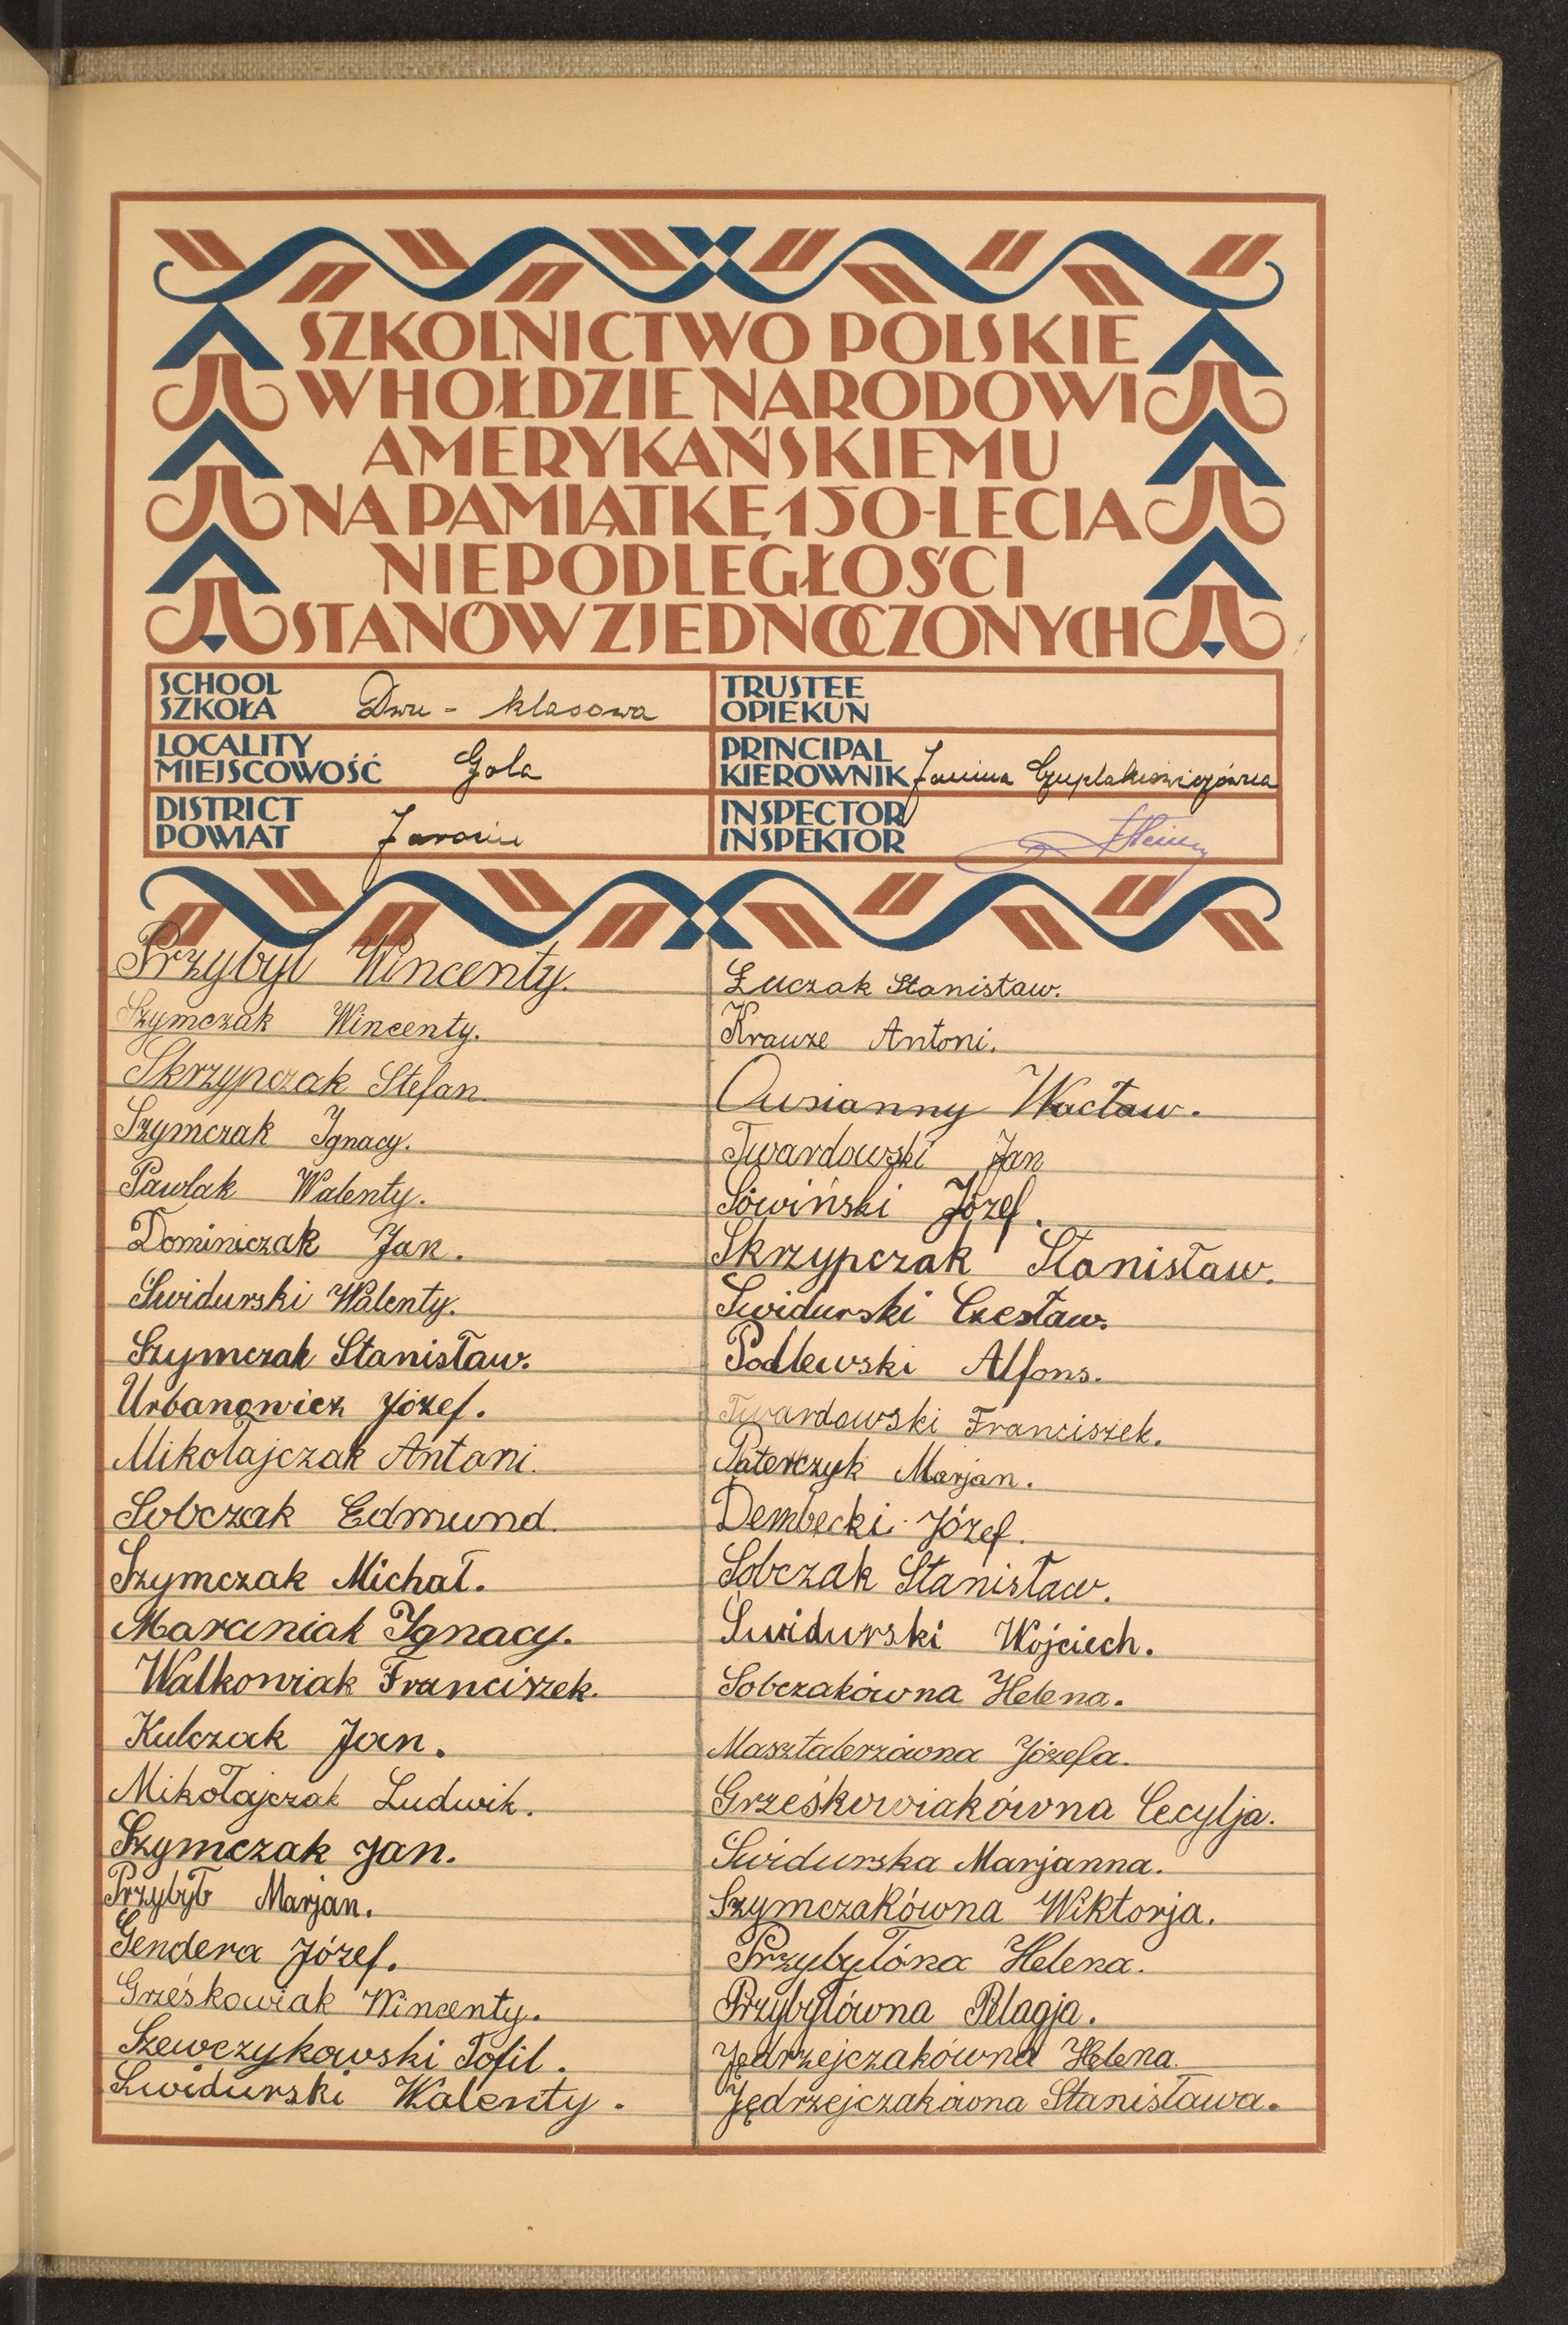 SZKOLNICTWO POLSKIE
W HOŁDZIE NARODOWI
AMERYKAŃSKIEMU
NA PAMIĄTKĘ 150-LECIA
NIEPODLEGŁOŚCI
STANÓW ZJEDNOCZONYCH
SCHOOL
SZKOŁA Dwu - klasowa
TRUSTEE
OPIEKUN
LOCALITY
MIEJSCOWOŚĆ Gola
PRINCIPAL
KIEROWNIK Janina
DISTRICT
POWIAT Jarocin
INSPECTOR
INSPEKTOR
Przybył Wincenty.
Szymczak Wincenty.
Skrzypczak Stefan.
Szymczak Ignacy.
Pawlak Walenty.
Dominiczak Jan.
Swidurski Walenty.
Szymczak Stanisław.
Urbanowicz Józef.
Mikołajczak Antoni.
Sobczak Edmund.
Szymczak Michał.
Marciniak Ignacy.
Walkowiak Franciszek.
Kulczak Jan.
Mikołajczak Ludwik.
Szymczak Jan.
Przybył Marjan.
Gendera Józef.
Grześkowiak Wincenty.
Szewczykowski Tofil.
Swidurski Walenty.
Łuczak Stanisław.
Krauze Antoni.
Ousianny Wacław.
Twardowski Jan
Sówiński Józef.
Skrzypczak Stanisław.
Swidurski Czesław.
Podlewski Alfons.
Twardowski Franciszek.
Paterczyk Marjan.
Dembecki Józef.
Sobczak Stanisław.
Swidurski Wojciech.
Sobczakówna Helena.
Masztalerzówna Józefa.
Grześkowiakówna Cecylja.
Swidurska Marjanna.
Szymczakówna Wiktorja.
Przybyłóna Helena.
Przybyłówna Pelagja.
Jędrzejczakówna Helena.
Jędrzejczakówna Stanisława.